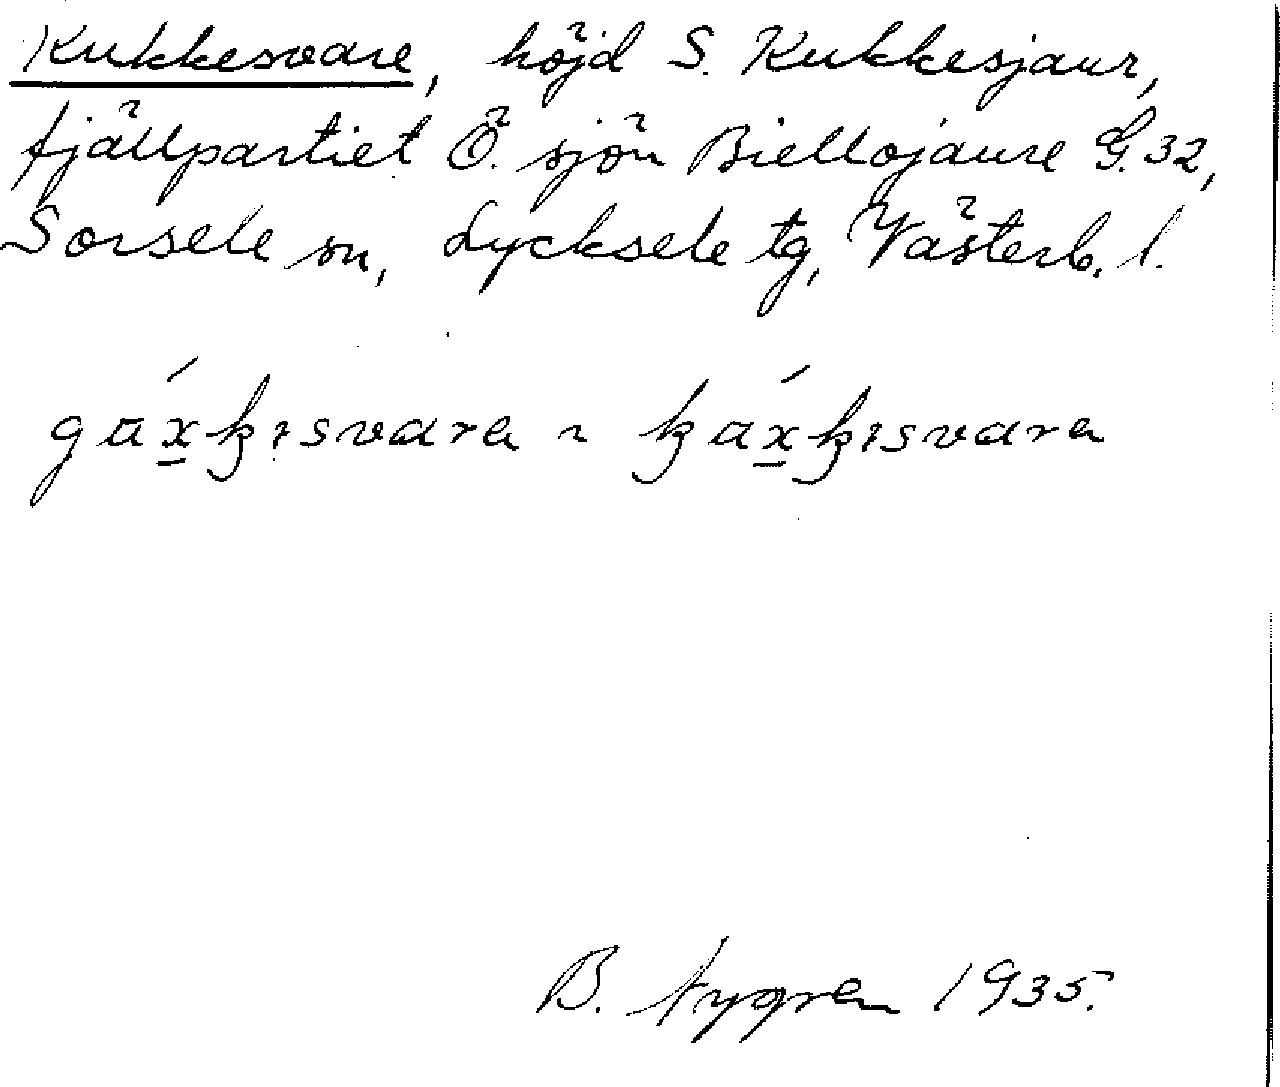 Kukkesvare, höjd S. Kukkesjaur,
fjällpartiet Ö. sjön Biellojaure G.32,
Sorsele sn, Lycksele tg, Västerb. l.
B. Nygren 1935.